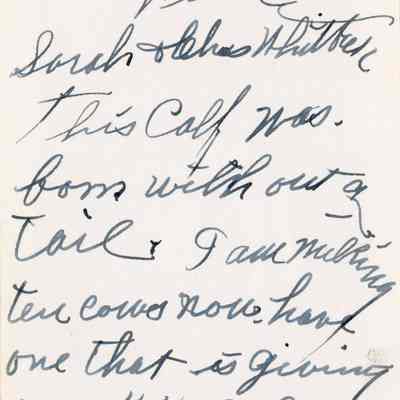 Sarah & Chas Whitbeck
This Calf was.
born with out a
tail. I am milking
ten cows now. have
one that is giving